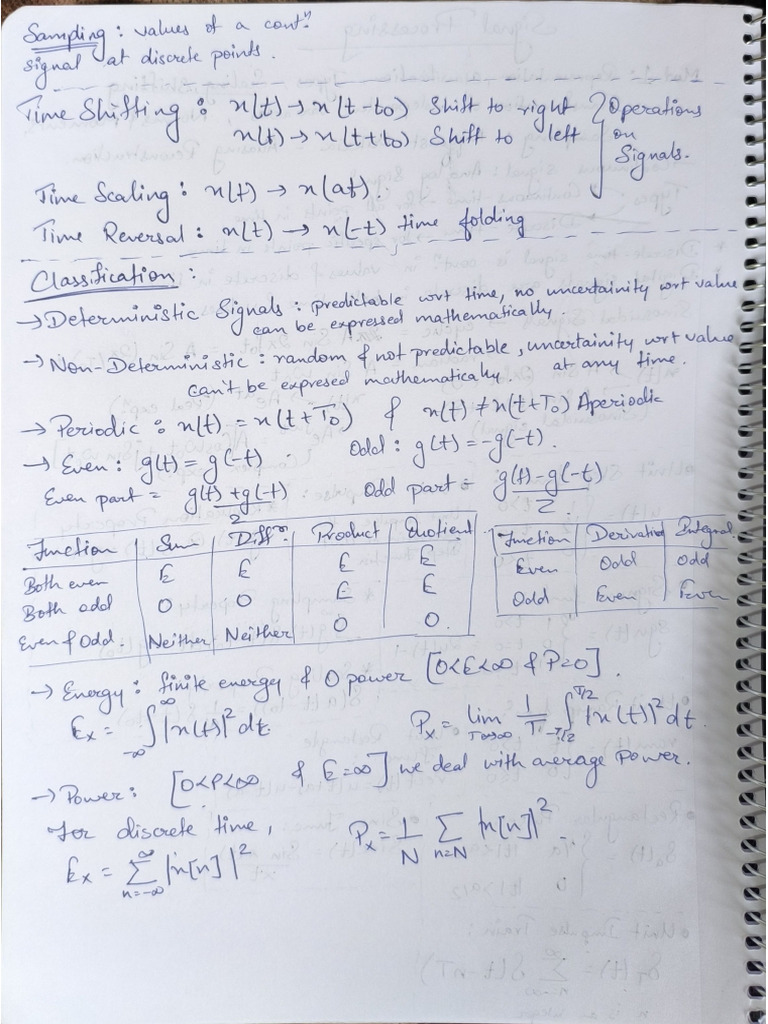 Sampling : values of a contⁿ.
signal at discrete points.
Time Shifting : x(t) → x(t-t₀) Shift to right } Operations
x(t) → x(t+t₀) Shift to left on
Signals.
Time Scaling : x(t) → x(at)
Time Reversal : x(t) → x(-t) time folding
Classification :
→ Deterministic Signals : predictable wrt time, no uncertainity wrt value
can be expressed mathematically.
→ Non-Deterministic : random & not predictable, uncertainity wrt value
can't be expresed mathematically. at any time.
→ Periodic : x(t) = x(t+T₀) & x(t) ≠ x(t+T₀) Aperiodic
→ Even : g(t) = g(-t) . Odd : g(t) = -g(-t) .
Even part = g(t)+g(-t)/2 Odd part = g(t)-g(-t)/2
Function | Sum | Diffⁿ. | Product | Quotient
Both even | E | E | E | E
Both odd | O | O | E | E
Even & Odd. | Neither | Neither | O | O.
Function | Derivative | Integral.
Even | Odd | Odd
Odd | Even | Even
→ Energy : finite energy & 0 power [0<E<∞ & P=0] .
Eₓ = ∫_{-∞}^{∞} |x(t)|² dt. Pₓ = lim_{T→∞} 1/T ∫_{-T/2}^{T/2} |x(t)|² dt.
→ Power : [0<P<∞ & E=∞] we deal with average power.
For discrete time, Pₓ = 1/N Σ_{n=N} |x[n]|² .
Eₓ = Σ_{n=-∞}^{∞} |x[n]|²